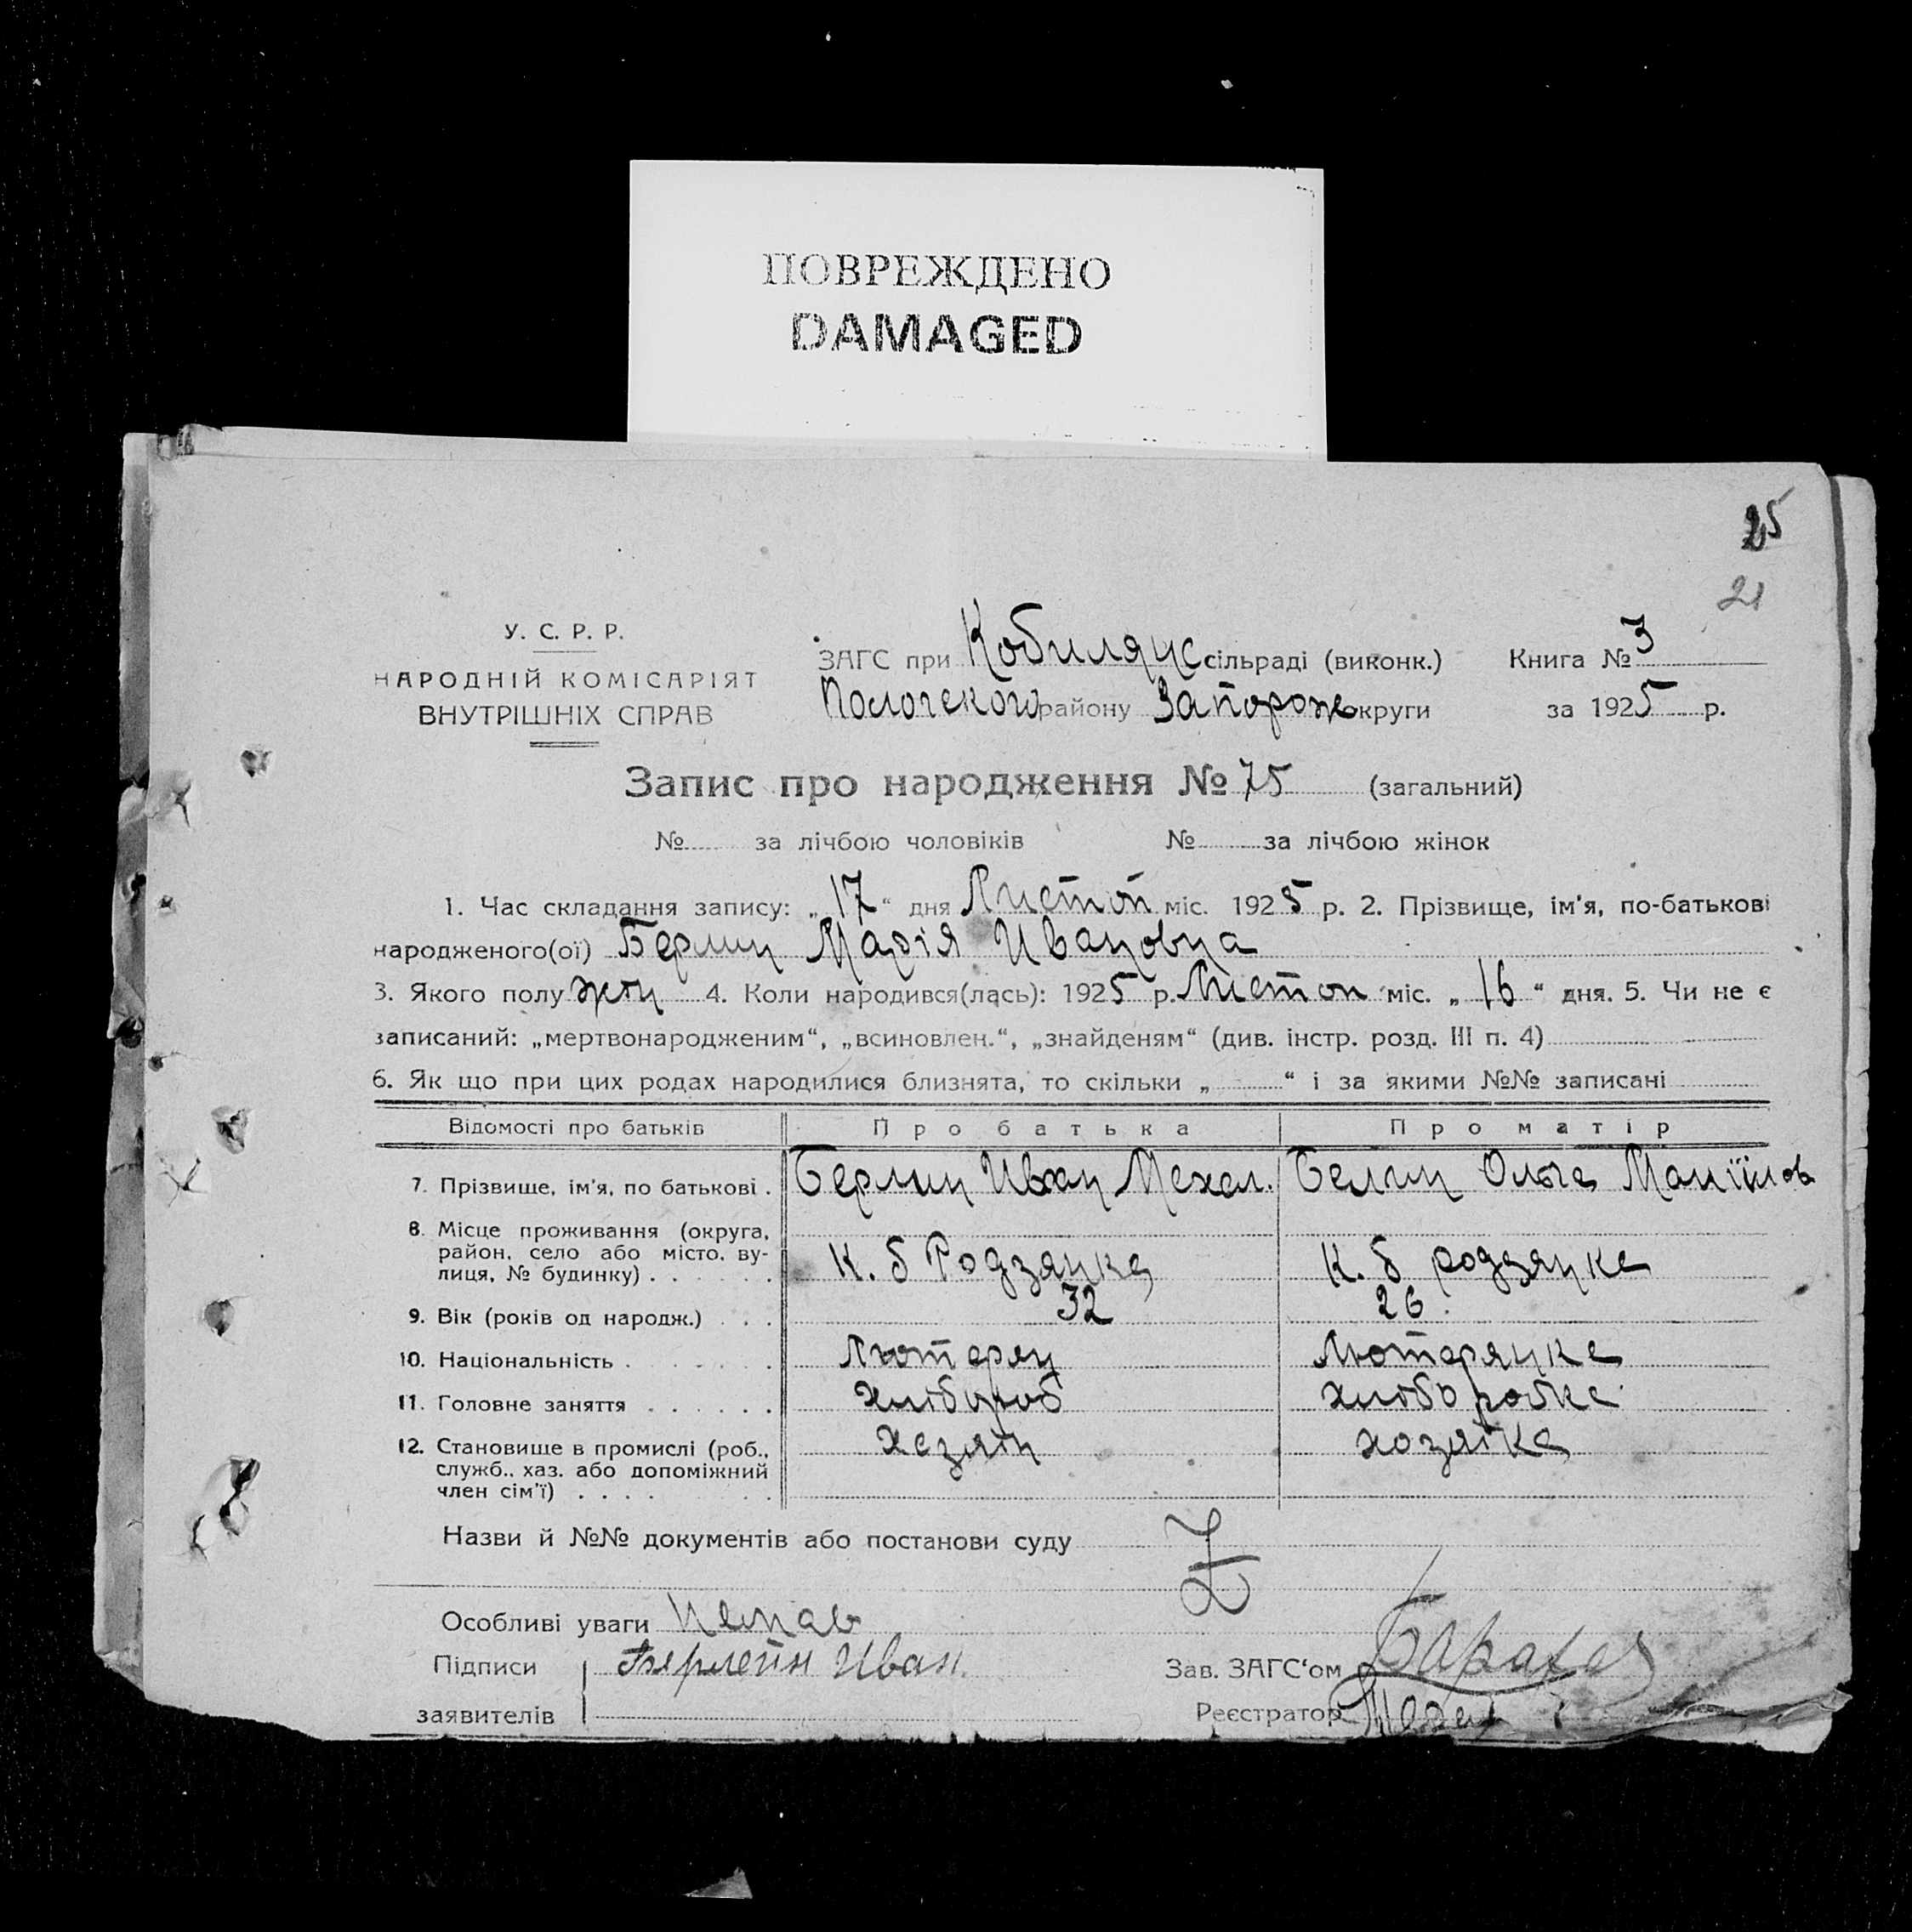 ПОВРЕЖДЕНО
DAMAGED
25
21
У. С. Р. Р.
НАРОДНІЙ КОМІСАРІЯТ
ВНУТРІШНІХ СПРАВ
ЗАГС при Кобиляцс сільраді (виконк.) Книга № 3
Пологского району Запорож округи за 1925 р.
Запис про народження № 75 (загальний)
№ за лічбою чоловіків № за лічбою жінок
1. Час складання запису: „17“ дня Листоп міс. 1925 р. 2. Прізвище, ім'я, по-батькові
народженого(ої) Берлин Марія Ивановна
3. Якого полу жін 4. Коли народився(лась): 1925 р. Листоп міс. „16“ дня. 5. Чи не є
записаний: „мертвонародженим“, „всиновлен.“, „знайденям“ (див. інстр. розд. III п. 4)
6. Як що при цих родах народилися близнята, то скільки „ “ і за якими №№ записані
Відомості про батьків Про батька Про матір
7. Прізвище, ім'я, по батькові . Берлин Иван Михал. Белин Ольга
8. Місце проживання (округа,
район, село або місто, ву-
лиця, № будинку) . К. б Родзянка К. б родзянка
9. Вік (років од народж.) . . . 32 26.
10. Національність . Лютерян Лютерянка
11. Головне заняття . Хлібороб хліборобка
12. Становище в промислі (роб.,
служб., хаз. або допоміжний
член сім'ї) . . . . Хазяін хозяіка
Назви й №№ документів або постанови суду Z
Особливі уваги Немає
Підписи Берлейн Иван.
заявителів
Зав. ЗАГС'ом
Реєстратор